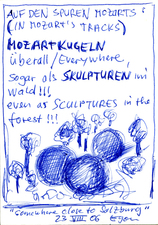 AUF DEN SPUREN MOZARTS
(IN MOZART'S TRACKS)
MOZARTKUGELN
überall/Everywhere,
sogar als SKULPTUREN im
Wald!!!
even as SCULPTURES in the
forest!!!
"Somewhere close to Salzburg"
23 VIII 06 Egon